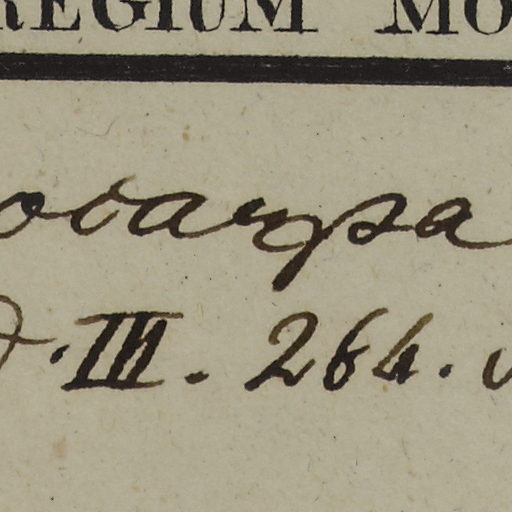 REGIUM MO
ocarpa
III. 264.